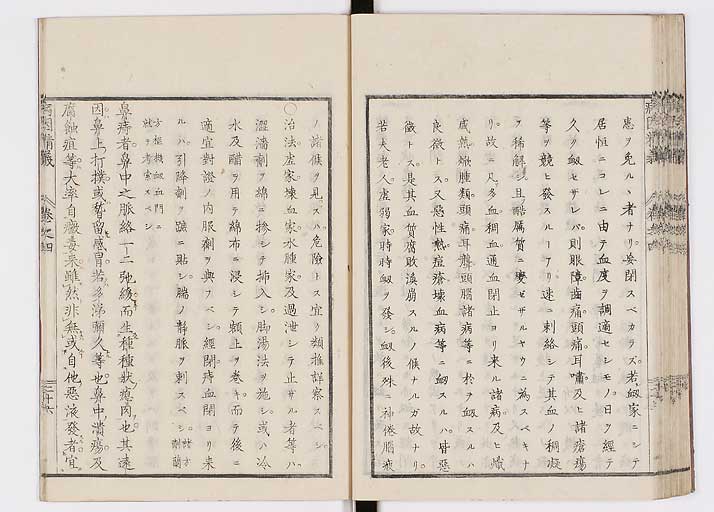 患ヲ免ルヽ者ナリ妄閉スベカラズ若衂家ニシテ
居恒ニコレニ由テ血度ヲ調適セシモノ日ヲ經テ
久ク衂セザレバ則眼障齒痛頭痛耳嘯及ヒ諸瘡瘍
等ヲ競ヒ發スルーアリ速ニ刺絡シテ其血ノ稠凝
ヲ稀解シ且酷腐質ニ變ゼザルヤウニ為スベキナ
リ故ニ凡多血稠血通血閉止ヨリ来ル諸病及ヒ熾
盛熱燉腫類頭痛耳聾頭腦諸病等ニ於ヲ衂スルハ
良徴トス又惡性熱痘瘡壊血病等ニ衂スルハ皆惡
徴トス是其血質腐敗潰崩スルノ候ナルガ故ナリ
若夫老人虚獨家時時衂ヲ發シ衂後殊ニ神倦腦疲
ノ諸候ヲ見ハスハ危險トス宜ク類推詳察スベシ
〇治法虚家壊血家水腫家及過泄シテ止サル者等ハ
澀濇劑ヲ綿ニ摻シテ挿入シ脚湯法ヲ施シ或ハ冷
水及醋ヲ用テ綿布ニ浸シテ頸上ヲ巻キ而テ後ニ
適宜對證ノ内服劑ヲ與フベシ經閉痔血閉ヨリ来
ルハ引降劑ヲ蹠ニ貼シ腨ノ靜脈ヲ刺スベシ諸方劑臈
方樞機衂血門ニ就テ考索スベシ
鼻痔者鼻中之脈絡一二弛緩而生種種狀瘜肉也其遠
因鼻上打撲或暫留感冒若多涕彌久等也鼻中潰瘍及
腐蝕疽等大率自黴毒来雖然非無或自他惡液發者宜
巻之四
二十六